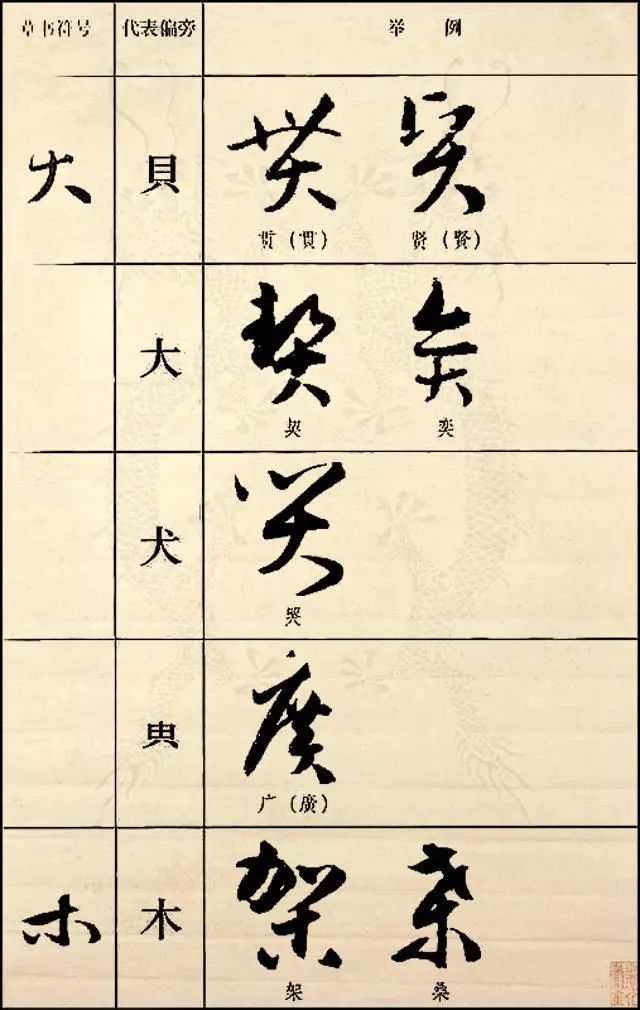 草书符号 代表偏旁 举 例
大 貝
贯(貫) 贤(賢)
大
契 奕
犬
哭
广(廣)
木
架 桑